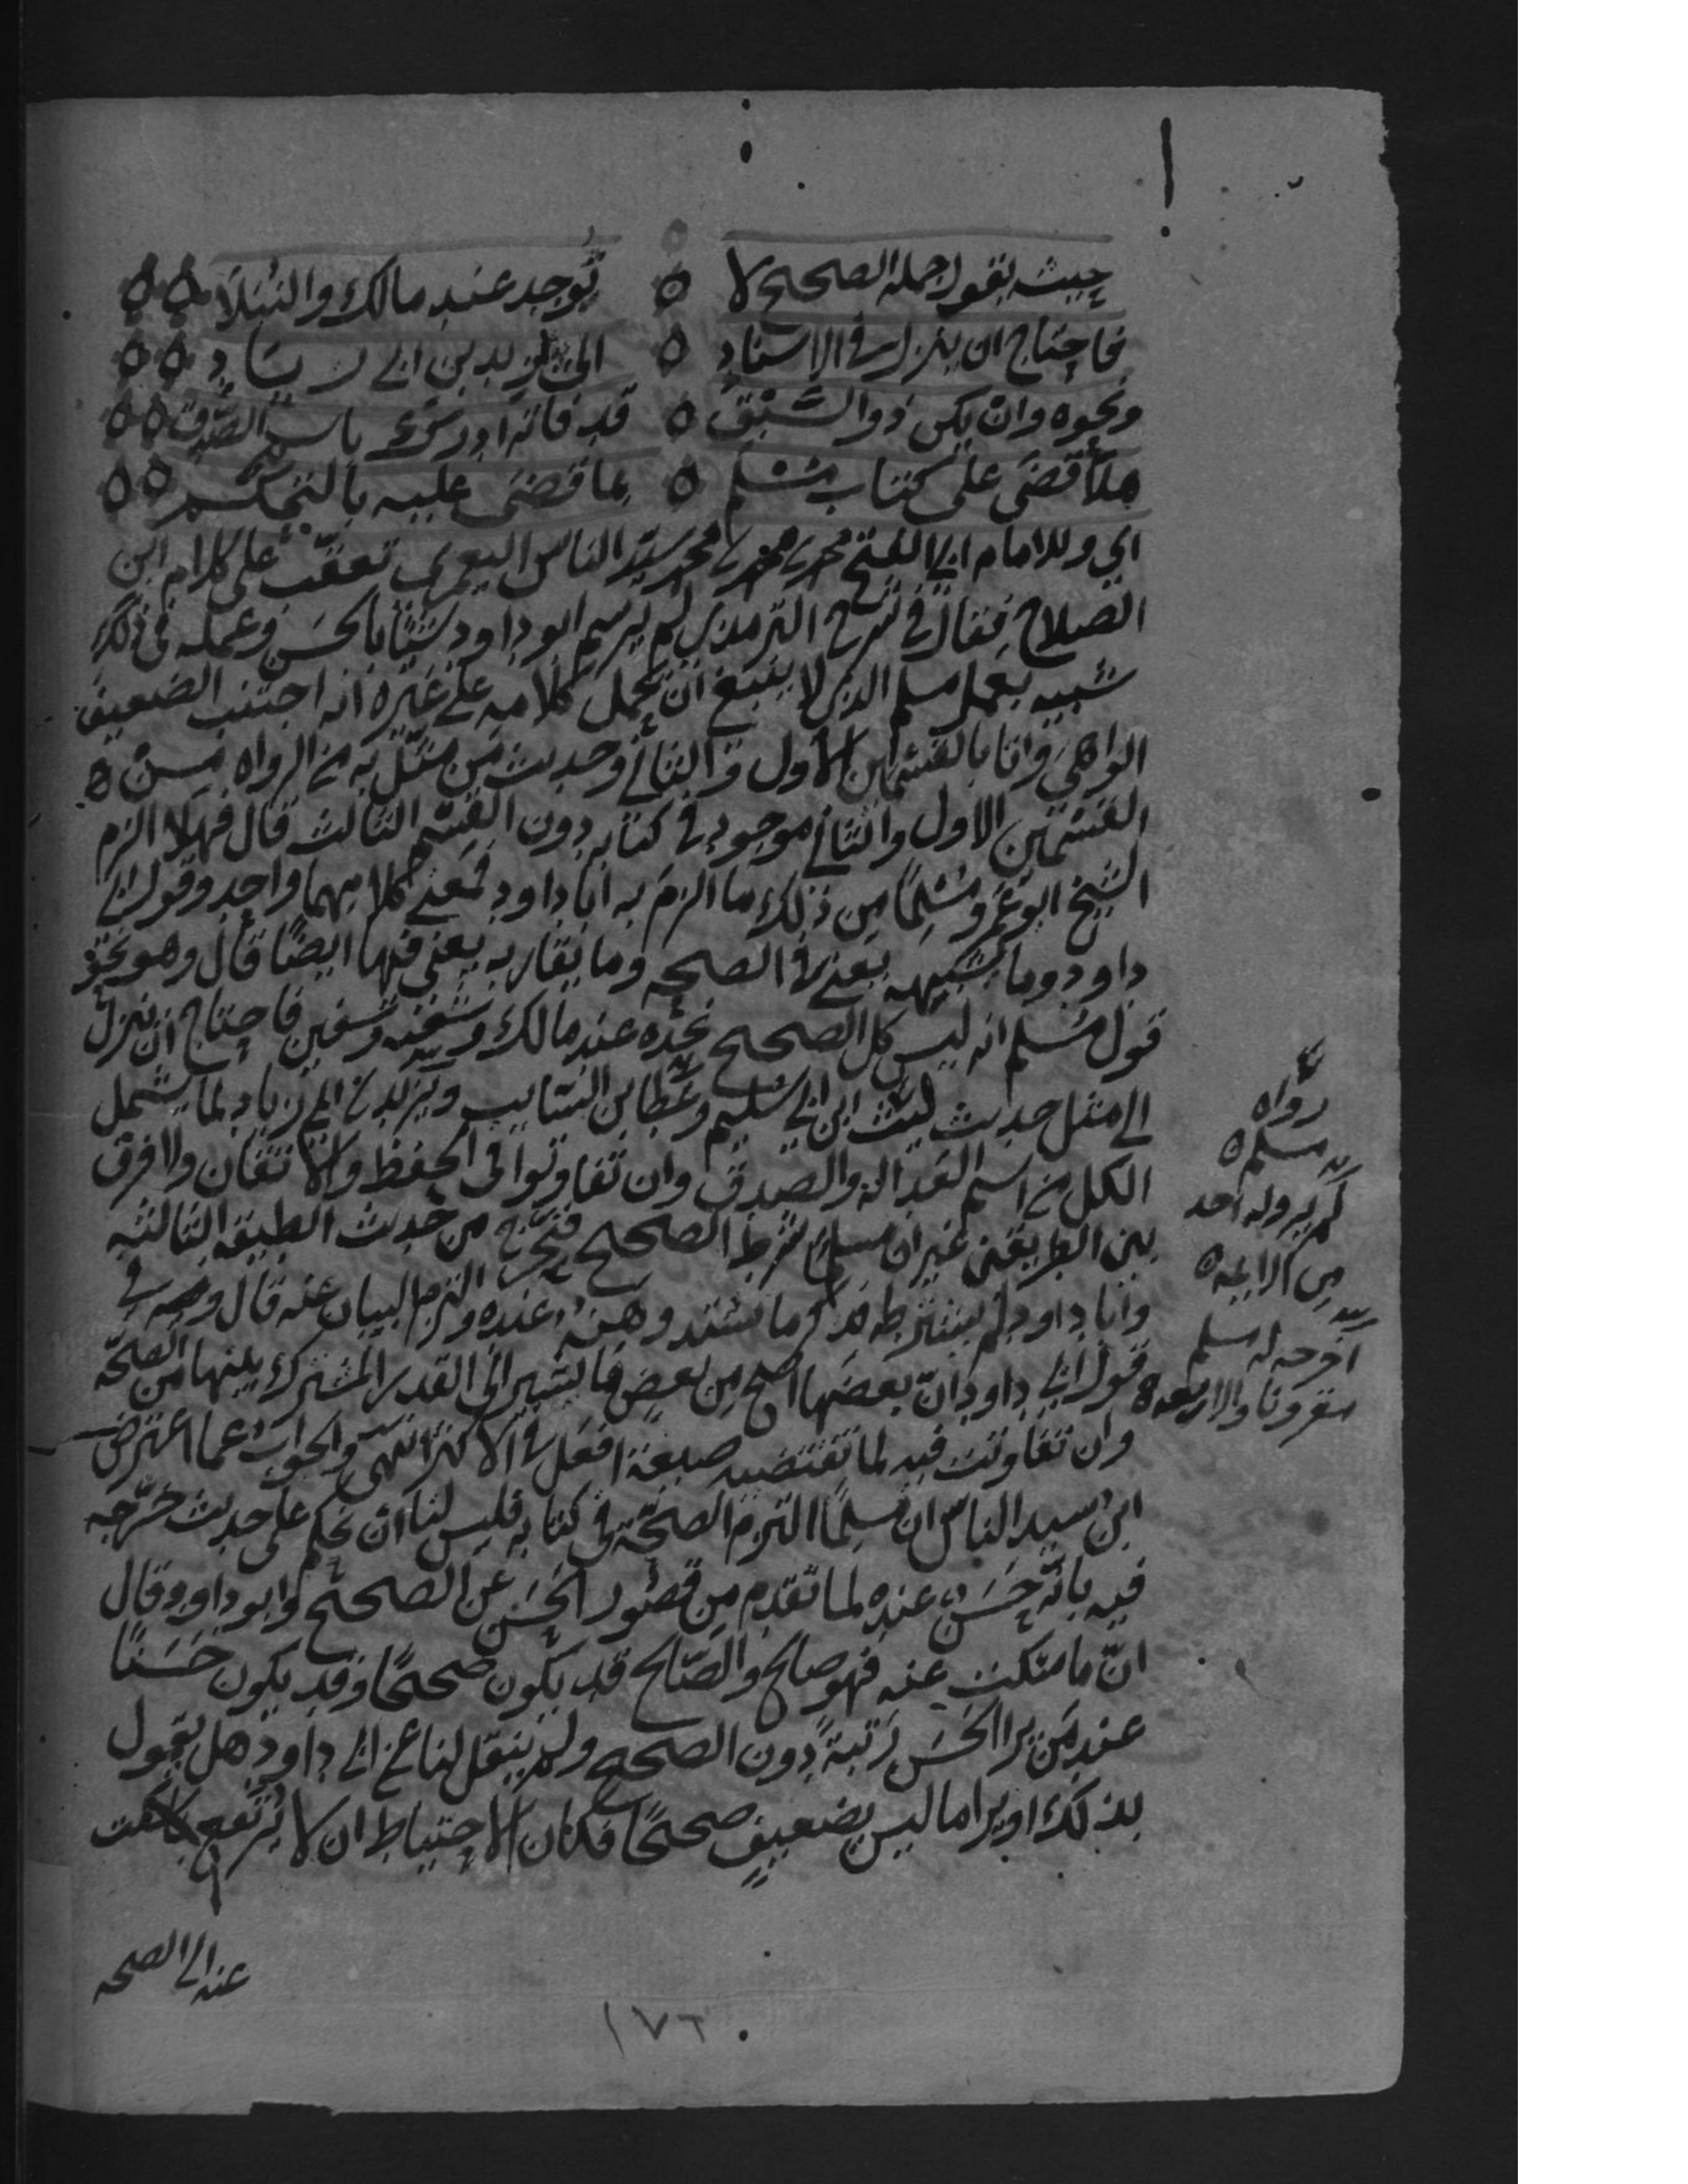 حيث يقول جملة الصحيح لا ٥ توجد عند مالك والنبلا ٥٥
فاحتاج ان ينزل في الاسناد ٥ الى يزيد بن ابي زياد ٥٥
ونحوه وان يكن ذو السبق ٥ قد فاته ادرك باسم الصدق ٥٥
هلا قضى على كتاب مسلم ٥ بما قضى عليه بالتحكم ٥٥
اي وللامام ابي الفتح محمد بن محمد بن محمد سيد الناس اليعمري تعقب على كلام ابن
الصلاح فقال في شرح الترمذي لم يرسم ابو داود شيئا بالحسن وعمله في ذلك
شبيه بعمل مسلم الذي لا ينبغي ان يحمل كلامه على غيره انه اجتنب الضعيف
الواهي واتا بالقسمين الاول والثاني وحديث من مثل به من الرواه من ٥
القسمين الاول والثاني موجود في كتابه دون القسم الثالث قال فهلا الزم
الشيخ ابو عمرو مسلما من ذلك ما الزم به ابا داود فمعنى كلاميهما واحد وقول ابي
داود وما يشبهه يعني في الصحه وما يقاربه يعني فيها ايضا قال وهو نحو
قول مسلم انه ليس كل الصحيح نجده عند مالك وشعبه وسفين فاحتاج ان ينزل
الى مثل حديث ليث ابن ابي سليم وعطا بن السائب ويزيد بن ابي زياد لما يشمل
الكل من اسم العداله والصدق وان تفاوتوا في الحفظ والاتقان ولا فرق
بين الطريقين غير ان مسلما شرط الصحيح فتحرج من حديث الطبقه الثالثه
وابا داود لم يشترطه فذكر ما يشتد وهنه عنده والتزم البيان عنه قال وفي
قول ابي داود ان بعضها اصح من بعض ما يشير الى القدر المشترك بينها من الصحة
وان تفاوتت فيه لما تقتضيه صيغة افعل في الاكثر انتهى والجواب عما اعترض
ابن سيد الناس ان مسلما التزم الصحة في كتابه فليس لنا ان نحكم على حديث خرجه
فيه بانه حسن عنده لما تقدم من قصور الحسن عن الصحيح وابو داود وقال
ان ما سكت عنه فهو صالح والصالح قد يكون صحيحا وقد يكون حسنا
عند من يرا الحسن رتبة دون الصحيح ولم ينقل لنا عن ابي داود هل يقول
بذلك او يرا ما ليس بضعيف صحيحا فكان الاحتياط ان لا يرتفع بما سكت
عنه الى الصحه
رواه
مسلم ٥
لم يرو له احد
من الاربعه ٥
اخرجه له مسلم
مقرونا والاربعه ٥
١٧٦